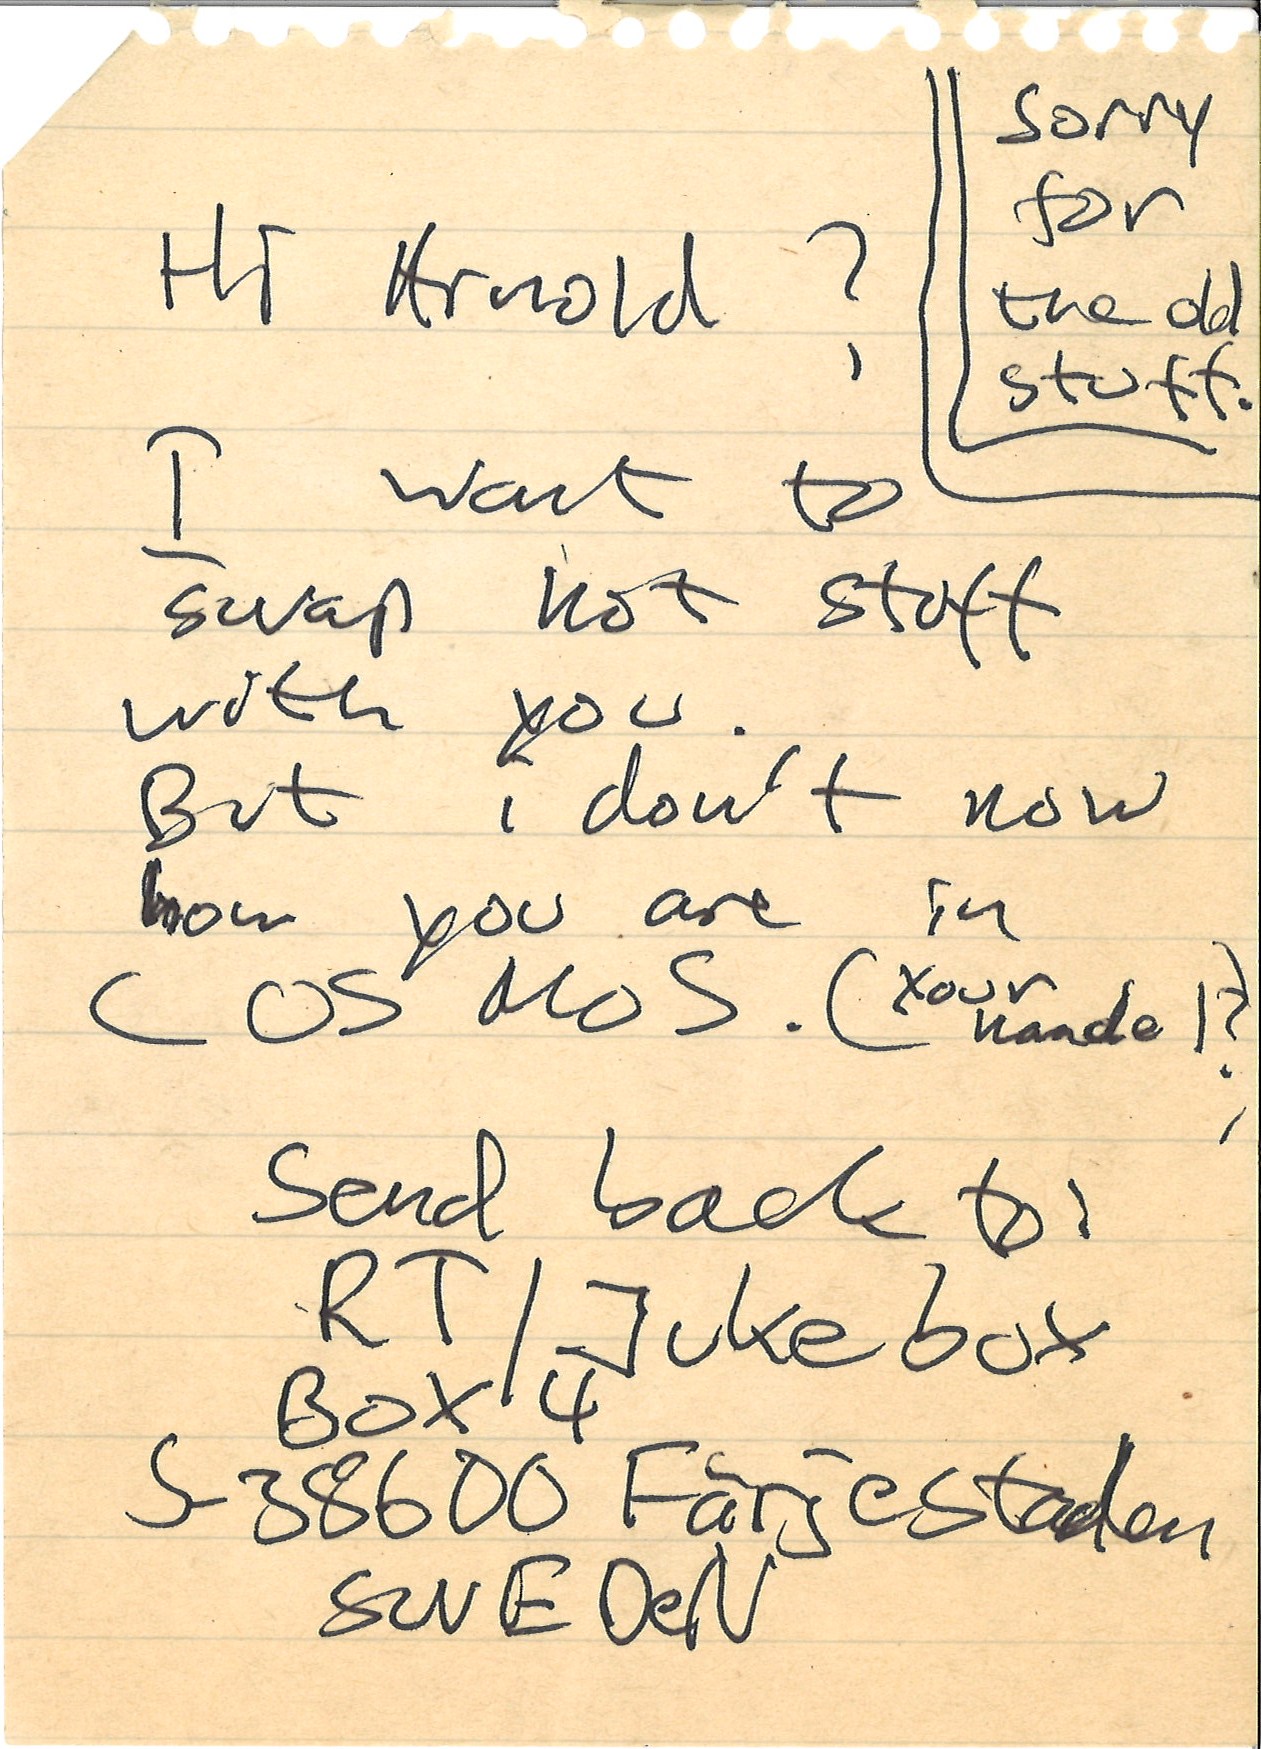 Sorry
for
the old
stuff.
Hi Arnold ?
I want to
swap hot stuff
with you.
But i don't now
how you are in
COSMOS. (Your
hande)?
Send back to:
RT/Jukebox
Box 4
S-38600 Färjestaden
SWEDeN